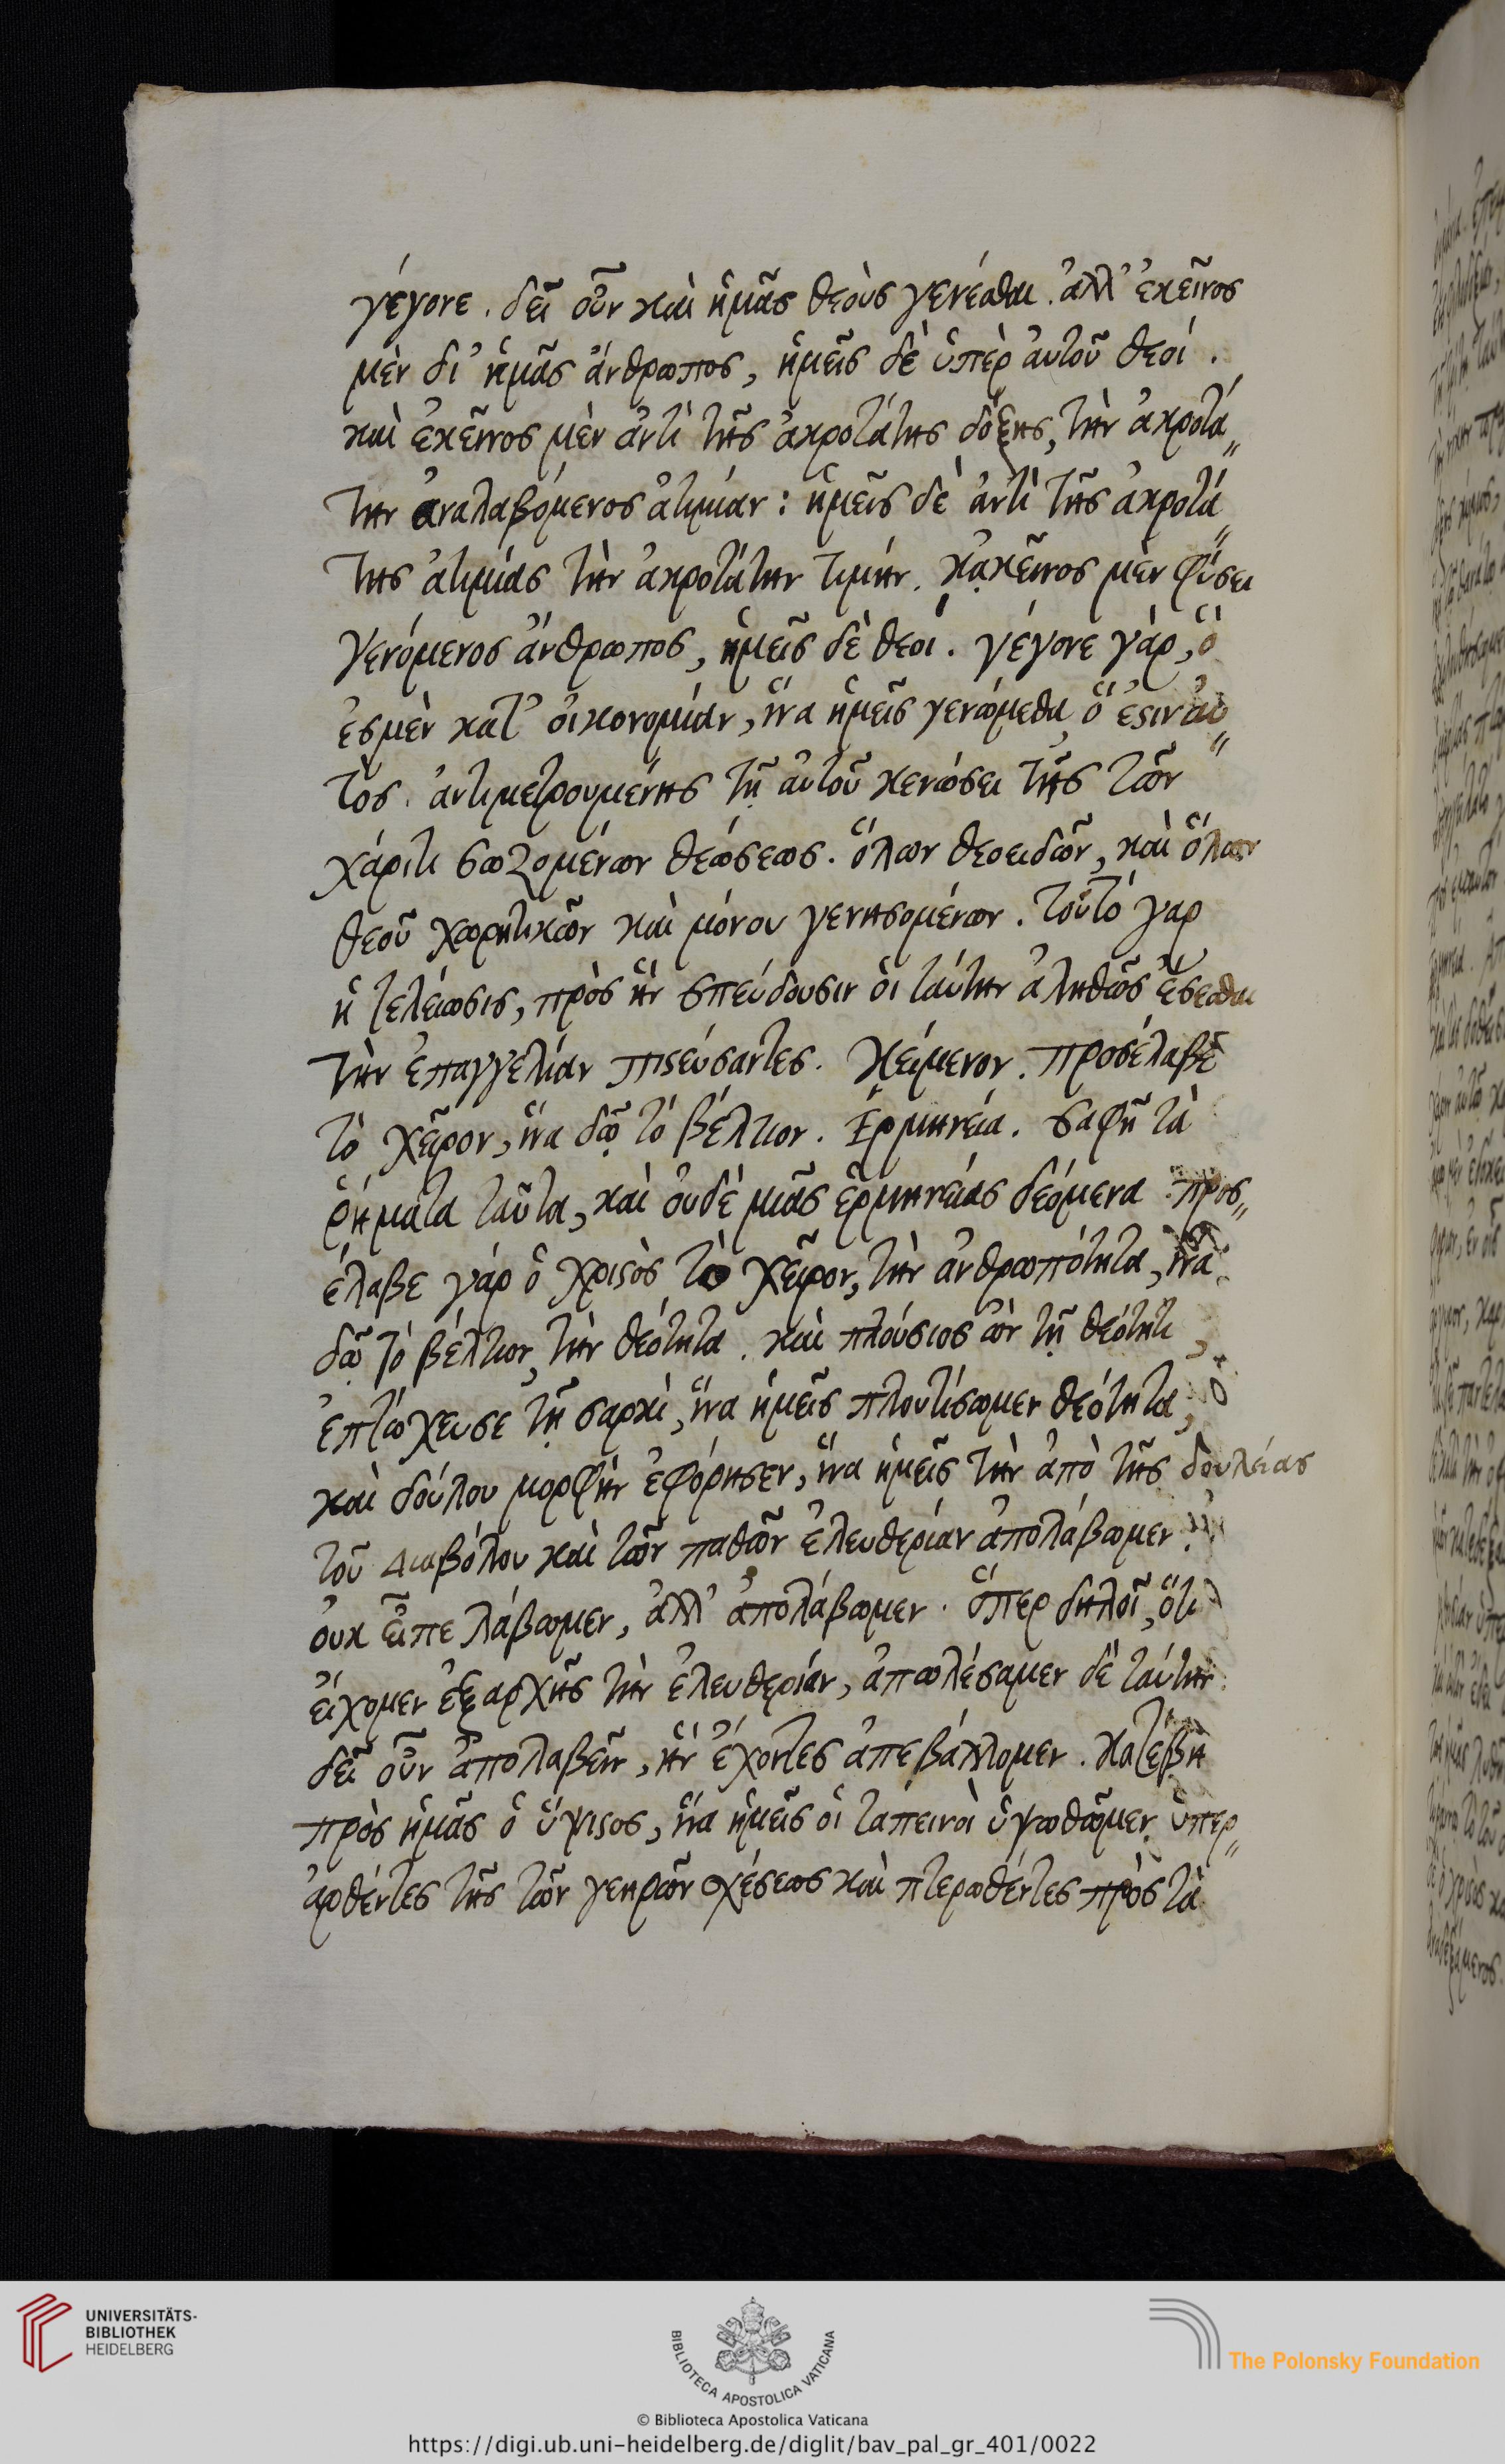 γέγονε. δεῖ οὖν καὶ ἡμᾶς θεοὺς γενέσθαι. ἀλλ' ἐκεῖνος
μὲν δι' ἡμᾶς ἄνθρωπος, ἡμεῖς δὲ ὑπὲρ αὐτοῦ θεοί.
καὶ ἐκεῖνος μὲν ἀντὶ τῆς ἀκροτάτης δόξης, τὴν ἀκροτά„
την ἀναλαβόμενος ἀτιμίαν: ἡμεῖς δὲ ἀντὶ τῆς ἀκροτά„
της ἀτιμίας τὴν ἀκροτάτην τιμήν. κἀκεῖνος μὲν φύσει
γενόμενος ἄνθρωπος, ἡμεῖς δὲ θεοί. γέγονε γὰρ, ὅ
ἐσμὲν κατ' οἰκονομίαν, ἵνα ἡμεῖς γενώμεθα, ὅ ἐστιν αὐ„
τὸς. ἀντιμετρουμένης τῇ αὐτοῦ κενώσει τῆς τῶν
χάριτι σωζομένων θεώσεως. ὅλων θεοειδῶν, καὶ ὅλων
θεοῦ χωρητικῶν καὶ μόνου γενησομένων. τοῦτό γαρ
ἡ τελείωσις, πρὸς ἣν σπεύδουσιν οἱ ταύτην ἀληθῶς ἔσεσθαι
τὴν ἐπαγγελίαν πιστεύσαντες. Κείμενον. προσέλαβε
τὸ χεῖρον, ἵνα δῷ τὸ βέλτιον. Ἑρμηνεία. σαφῆ τὰ
ῥήματα ταῦτα, καὶ οὐδὲ μιᾶς ἑρμηνείας δεόμενα. προς„
έλαβε γάρ ὁ χριστὸς τὸ χεῖρον, τὴν ἀνθρωπότητα, ἵνα
δῷ τὸ βέλτιον, τὴν θεότητα. καὶ πλούσιος ὢν τῇ θεότητι,
ἐπτώχευσε τῇ σαρκὶ, ἵνα ἡμεῖς πλουτίσωμεν θεότητα,
καὶ δούλου μορφὴν ἐφόρησεν, ἵνα ἡμεῖς τὴν ἀπὸ τῆς δουλείας
τοῦ διαβόλου καὶ τῶν παθῶν ἐλευθερίαν ἀπολάβωμεν.
οὐκ εἶπε λάβωμεν, ἀλλ' ἀπολάβωμεν. ὅπερ δηλοῖ, ὅτι
εἴχομεν ἐξαρχῆς τὴν ἐλευθερίαν, ἀπωλέσαμεν δὲ ταύτην.
δεῖ οὖν ἀπολαβεῖν, ἣν ἔχοντες ἀπεβάλλομεν. κατέβη
πρὸς ἡμᾶς ὁ ὕψιστος, ἵνα ἡμεῖς οἱ ταπεινοὶ ὑψωθῶμεν, ὑπερ„
αρθέντες τῆς τῶν γεηρῶν σχέσεως καὶ πτερωθέντες πρὸς τὰ
UNIVERSITÄTS-
BIBLIOTHEK
HEIDELBERG
BIBLIOTECA APOSTOLICA VATICANA
The Polonsky Foundation
© Biblioteca Apostolica Vaticana
https://digi.ub.uni-heidelberg.de/diglit/bav_pal_gr_401/0022